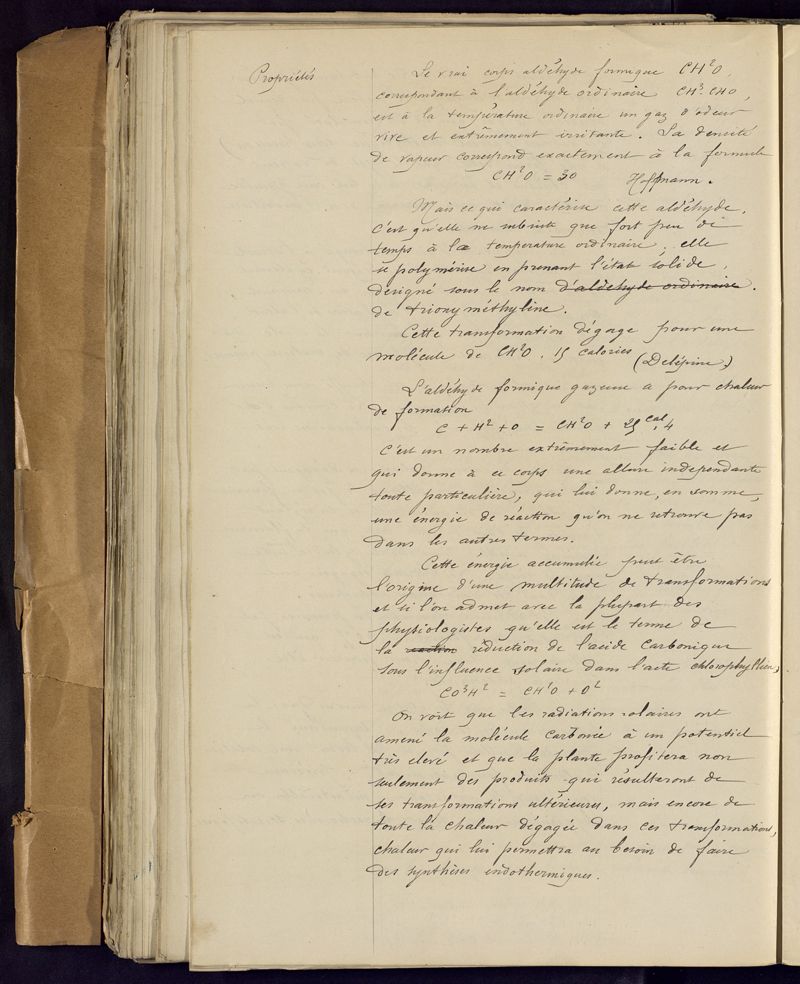 Propriétés
Le vrai corps aldéhyde formique CH²O,
correspondant à l'aldéhyde ordinaire CH³-CHO,
est à la température ordinaire un gaz d'odeur
vive et extrêmement irritante. Sa densité
de vapeur correspond exactement à la formule
CH²O = 30 Hoffmann.
Mais ce qui caractérise cette aldéhyde,
c'est qu'elle ne subsiste que fort peu de
temps à la température ordinaire ; elle
se polymérise en prenant l'état solide,
désigné sous le nom d'aldéhyde ordinaire.
de trioxyméthyline.
Cette transformation dégage pour une
molécule de CH²O, 15 calories (Delépine,)
L'aldéhyde formique gazeuse a pour chaleur
de formation
C + H² + O = CH²O + 25 cal, 4
C'est un nombre extrêmement faible et
qui donne à ce corps une allure indépendante
toute particulière, qui lui donne, en somme,
une énergie de réaction qu'on ne retrouve pas
dans les autres termes.
Cette énergie accumulée peut être
l'origine d'une multitude de transformations
et si l'on admet avec la plupart des
physiologistes qu'elle est le terme de
la reaction réduction de l'acide carbonique
sous l'influence solaire dans l'acte chlorophyllien,
CO³H² = CH²O + O²
On voit que les radiations solaires ont
amené la molécule carbonée à un potentiel
très élevé et que la plante profitera non
seulement des produits qui résulteront de
ses transformations ultérieures, mais encore de
toute la chaleur dégagée dans ces transformations,
chaleur qui lui permettra au besoin de faire
des synthèses endothermiques.